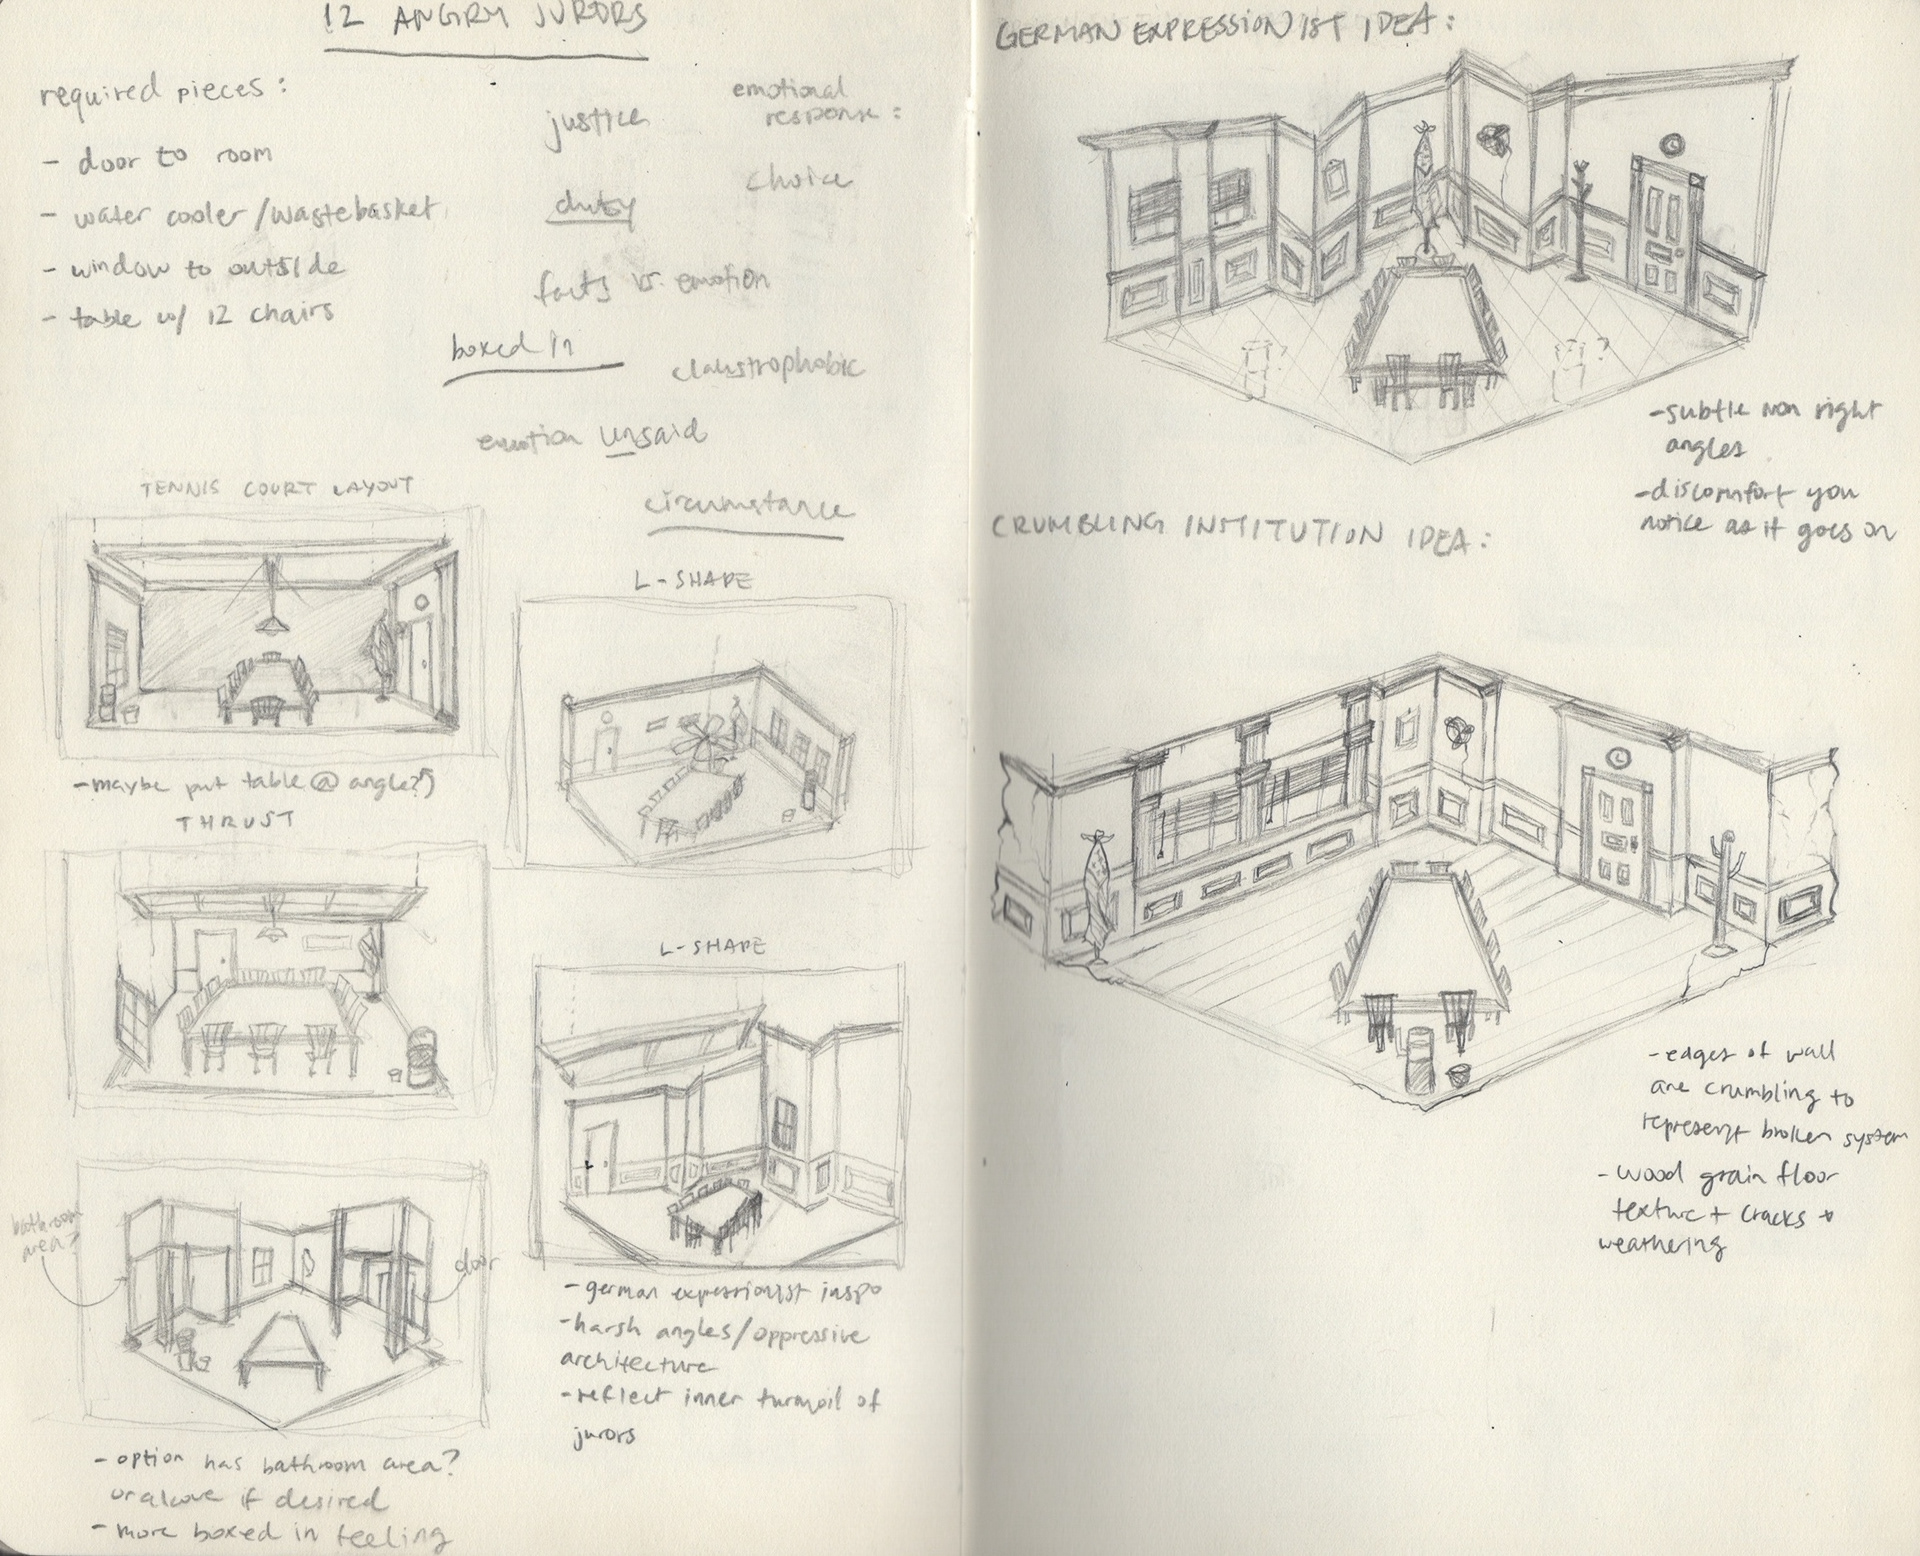 12 ANGRY JURORS
required pieces:
- door to room
- water cooler/wastebasket
- window to outside
- table w/ 12 chairs
justice
duty
facts vs. emotion
boxed in
claustrophobic
emotion unsaid
circumstance
emotional
response:
choice
TENNIS COURT LAYOUT
- maybe put table @ angle?
THRUST
bathroom
area?
door
- option has bathroom area?
or alcove if desired
- more boxed in feeling
L-SHAPE
L-SHAPE
- german expressionist inspo
- harsh angles/oppressive
architecture
- reflect inner turmoil of
jurors
GERMAN EXPRESSIONIST IDEA:
?
- subtle non right
angles
- discomfort you
notice as it goes on
CRUMBLING INSTITUTION IDEA:
- edges of wall
are crumbling to
represent broken system
- wood grain floor
texture + cracks +
weathering